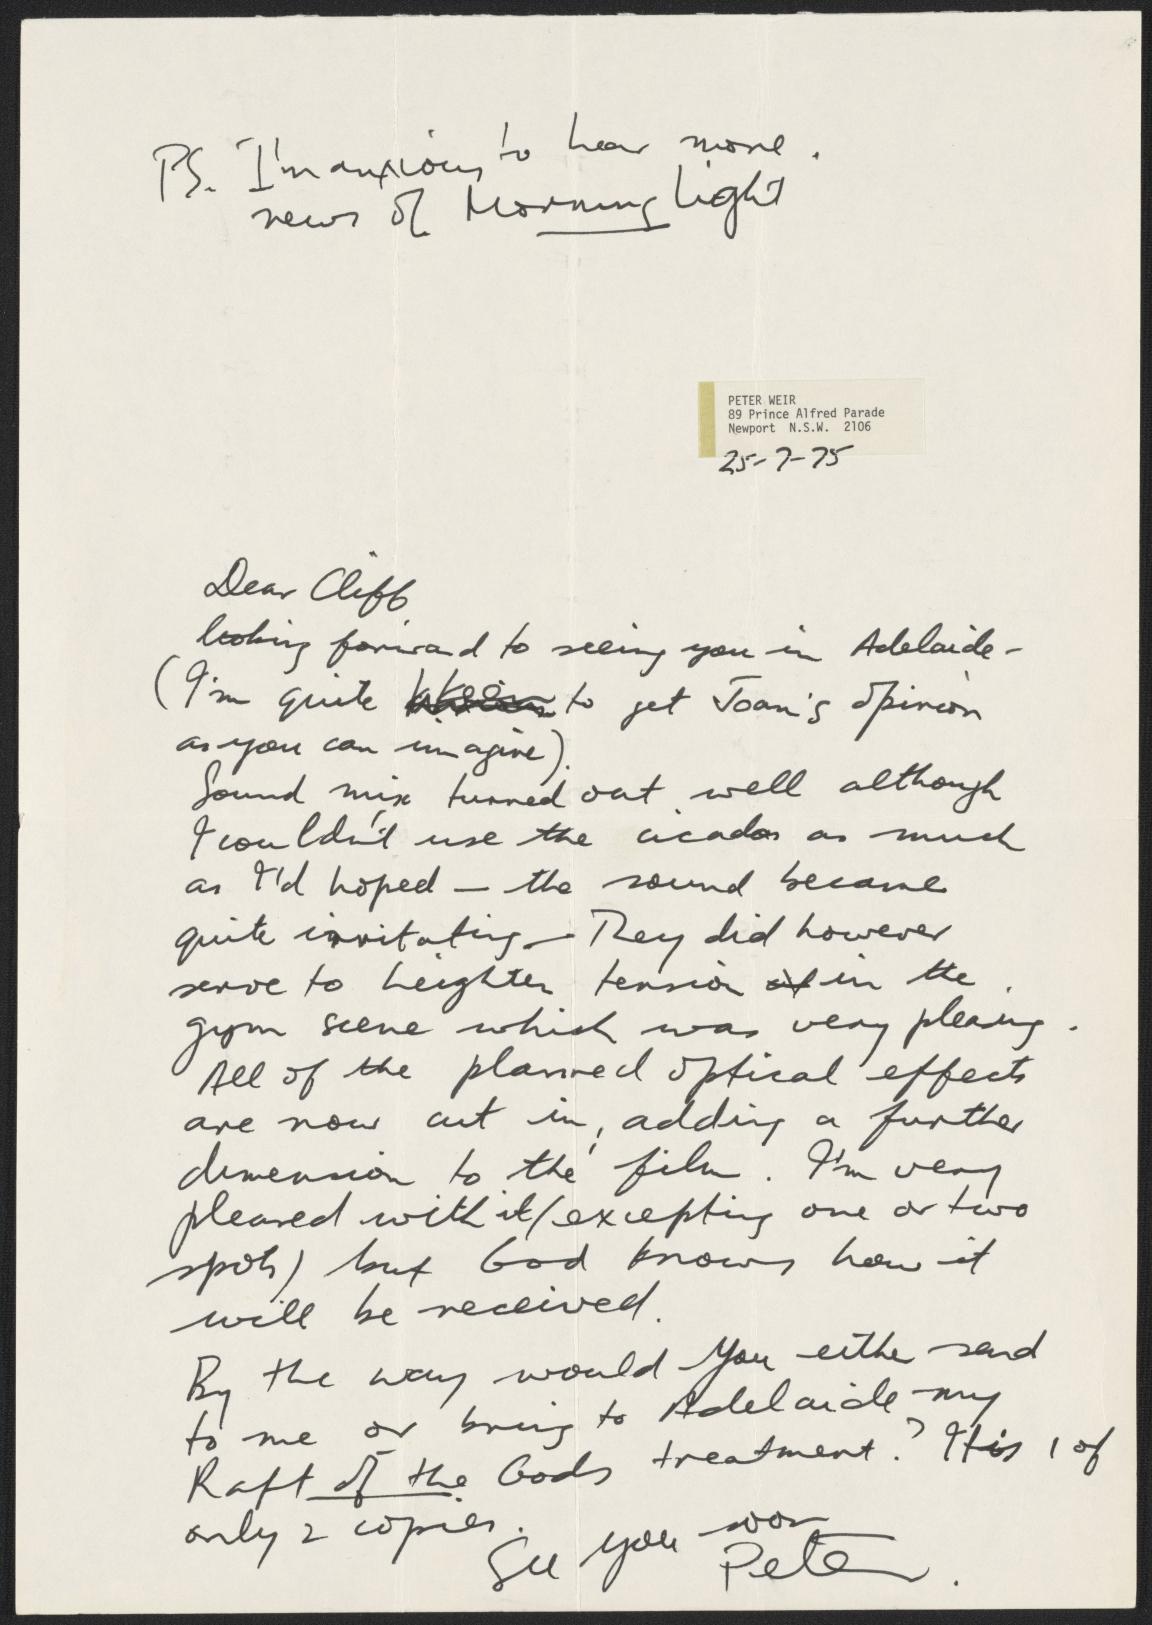 PS. I'm anxious to hear more.
news of Morning Light
PETER WEIR
89 Prince Alfred Parade
Newport N.S.W. 2106
25-7-75
Dear Cliff
looking forward to seeing you in Adelaide -
(I'm quite to get Joan's opinion
as you can imagine).
Sound mix turned out well although
I couldn't use the cicadas as much
as I'd hoped — the sound became
quite irritating — They did however
serve to heighten tension in the
gym scene which was very pleasing.
All of the planned optical effects
are now cut in, adding a further
dimension to the film. I'm very
pleased with it (excepting one or two
spots) but God knows how it
will be received.
By the way would you either send
to me or bring to Adelaide my
Raft of the Gods treatment? It is 1 of
only 2 copies.
See you soon
Peter.